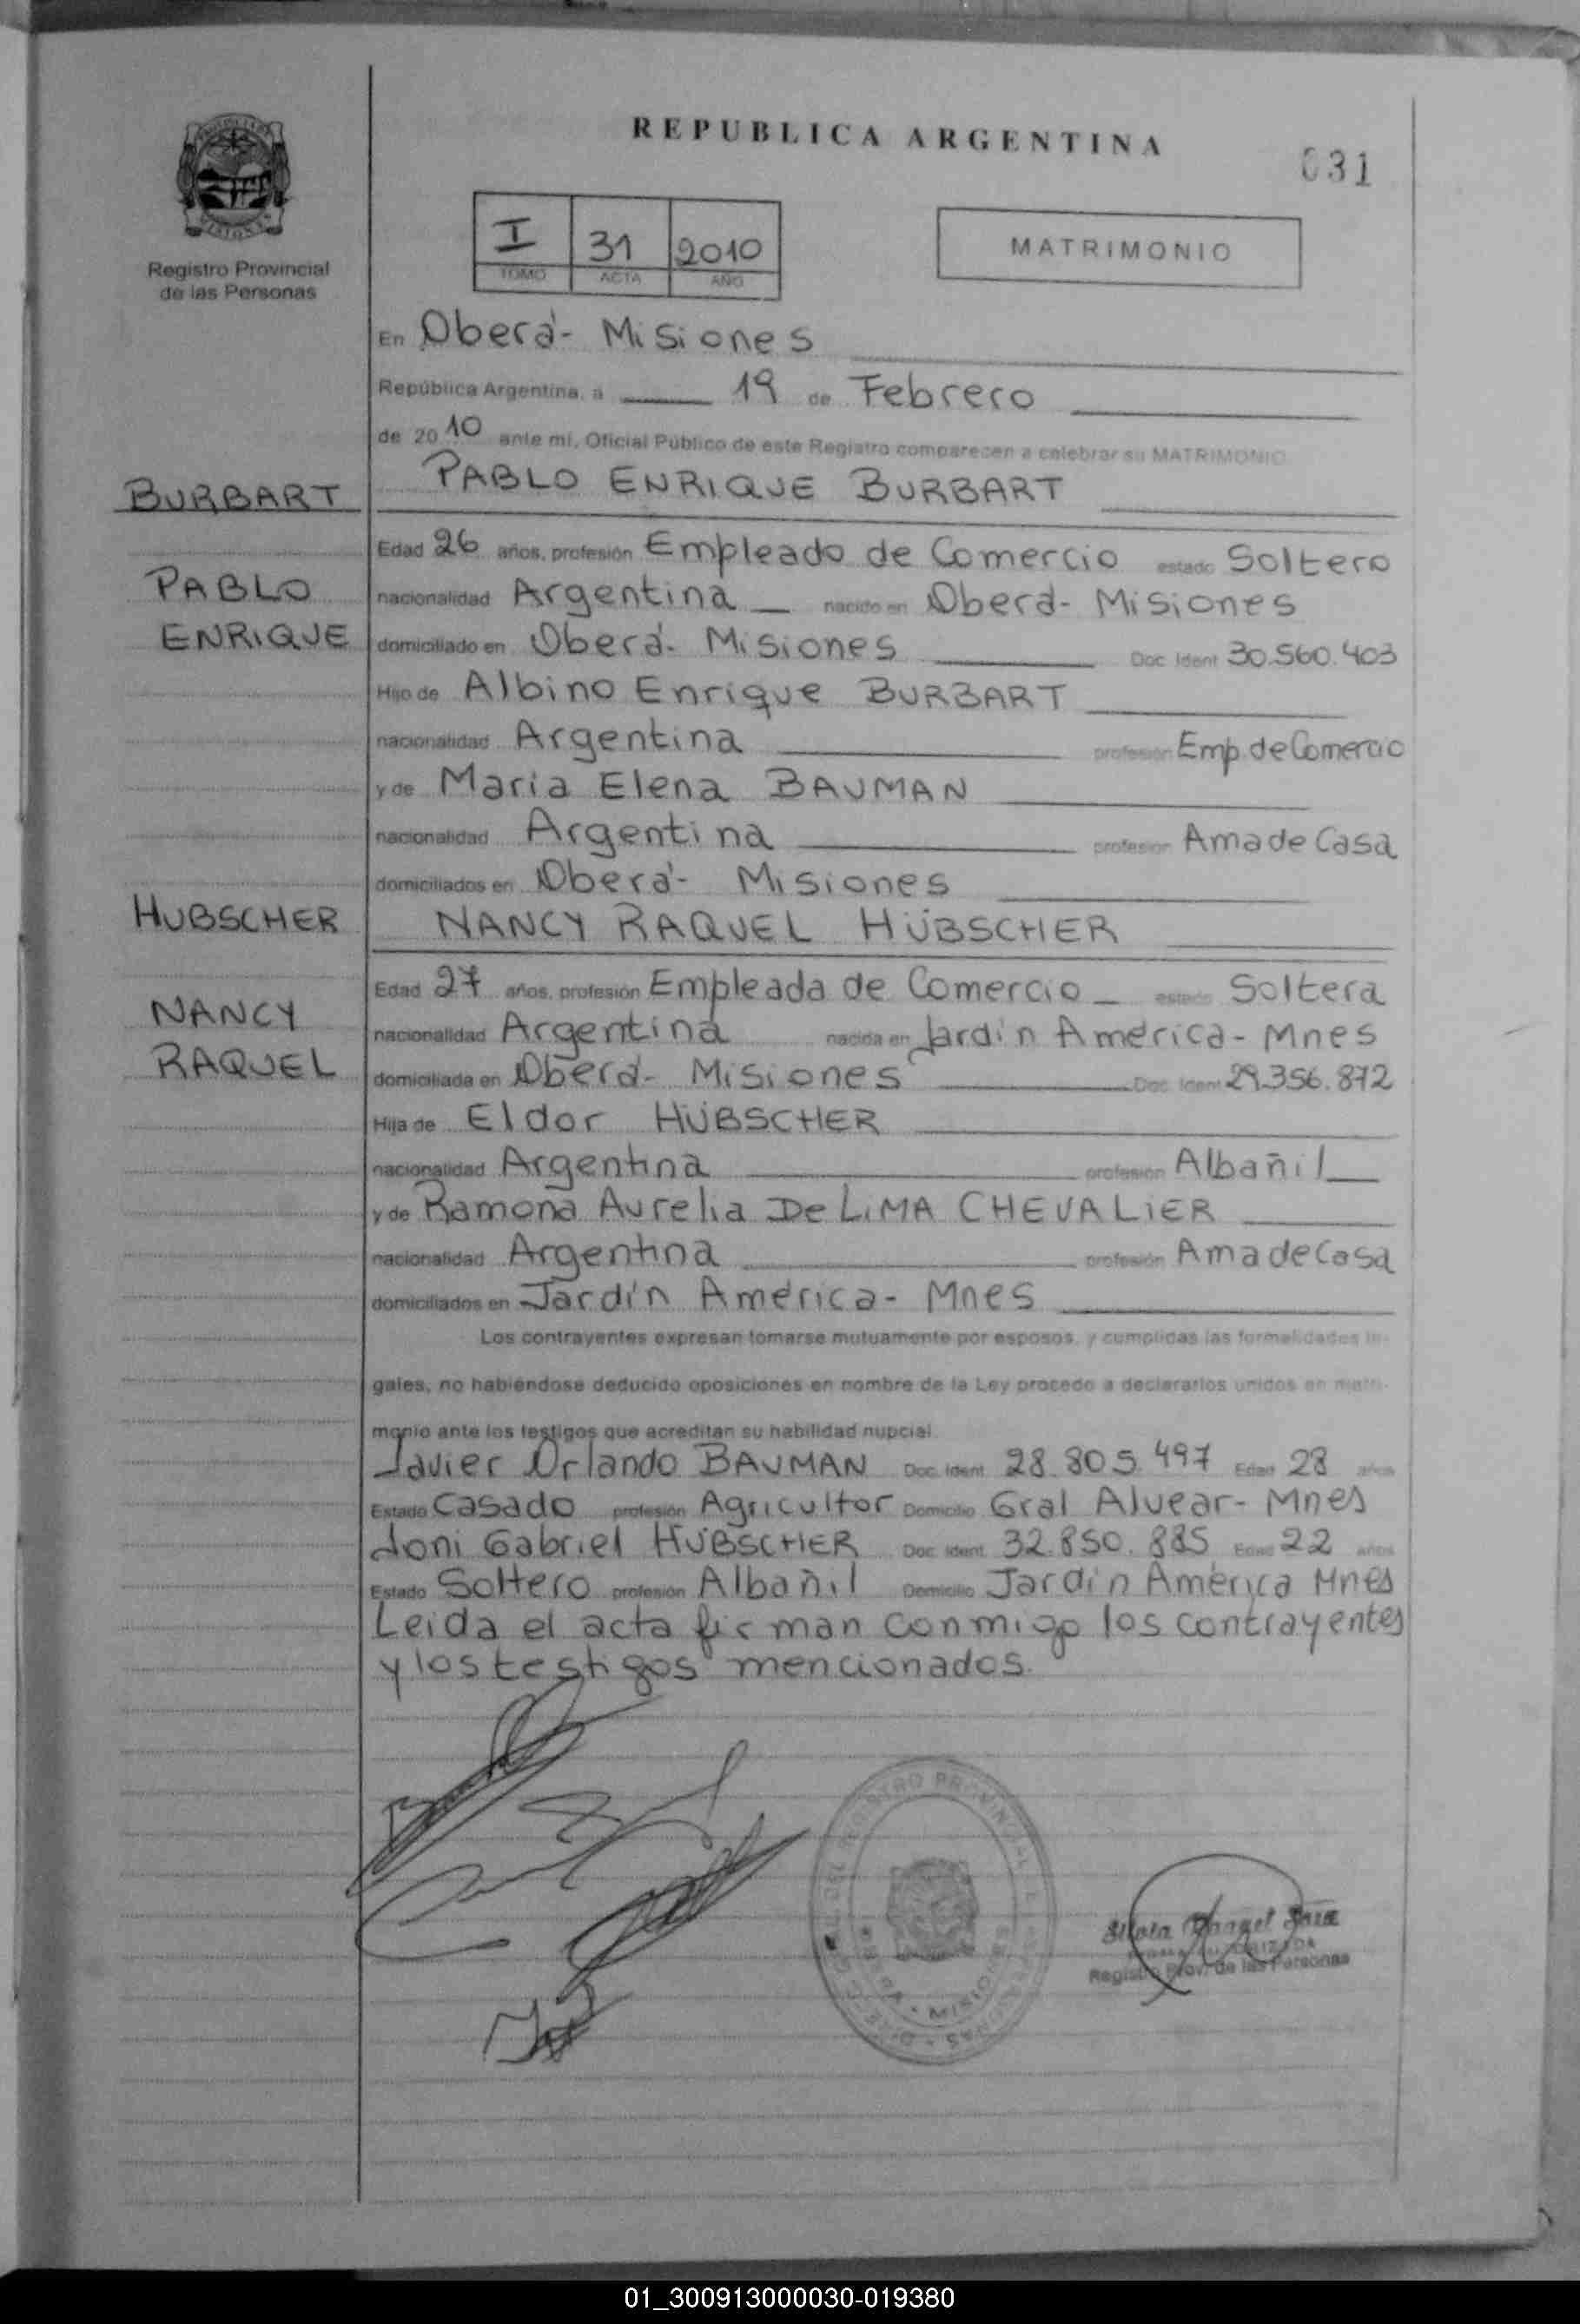 REPUBLICA ARGENTINA
031
Registro Provincial
de las Personas
I 31 2010
TOMO ACTA AÑO
MATRIMONIO
En Oberá- Misiones
República Argentina, a 19 de Febrero
de 2010 ante mí, Oficial Público de este Registro comparecen a celebrar su MATRIMONIO
BURBART PABLO ENRIQUE BURBART
Edad 26 años, profesión Empleado de Comercio estado Soltero
PABLO nacionalidad Argentina nacido en Oberá- Misiones
ENRIQUE domiciliado en Oberá- Misiones Doc Ident 30.560.403
Hijo de Albino Enrique BURBART
nacionalidad Argentina profesión Emp. de Comercio
y de Maria Elena BAUMAN
nacionalidad Argentina profesión Ama de Casa
domiciliados en Oberá- Misiones
HUBSCHER NANCY RAQUEL HÜBSCHER
Edad 27 años, profesión Empleada de Comercio estado Soltera
NANCY nacionalidad Argentina nacida en Jardín América- Mnes
RAQUEL domiciliada en Oberá- Misiones Doc Ident 29.356.872
Hija de Eldor HÜBSCHER
nacionalidad Argentina profesión Albañil
y de Ramona Aurelia De LiMA CHEVALiER
nacionalidad Argentina profesión Ama de Casa
domiciliados en Jardín América- Mnes
Los contrayentes expresan tomarse mutuamente por esposos, y cumplidas las formalidades le-
gales, no habiéndose deducido oposiciones en nombre de la Ley procedo a declararlos unidos en matri-
monio ante los testigos que acreditan su habilidad nupcial.
Javier Orlando BAUMAN Doc. Ident 28.805.497 Edad 28 años
Estado Casado profesión Agricultor Domicilio Gral Alvear- Mnes
Joni Gabriel HÜBSCHER Doc. Ident 32.850.885 Edad 22 años
Estado Soltero profesión Albañil Domicilio Jardín América Mnes
Leida el acta firman conmigo los contrayentes
y los testigos mencionados.
REGISTRO PROVINCIAL DE LAS PERSONAS
OBERA - MISIONES
Registro Prov. de las Personas
01_300913000030-019380